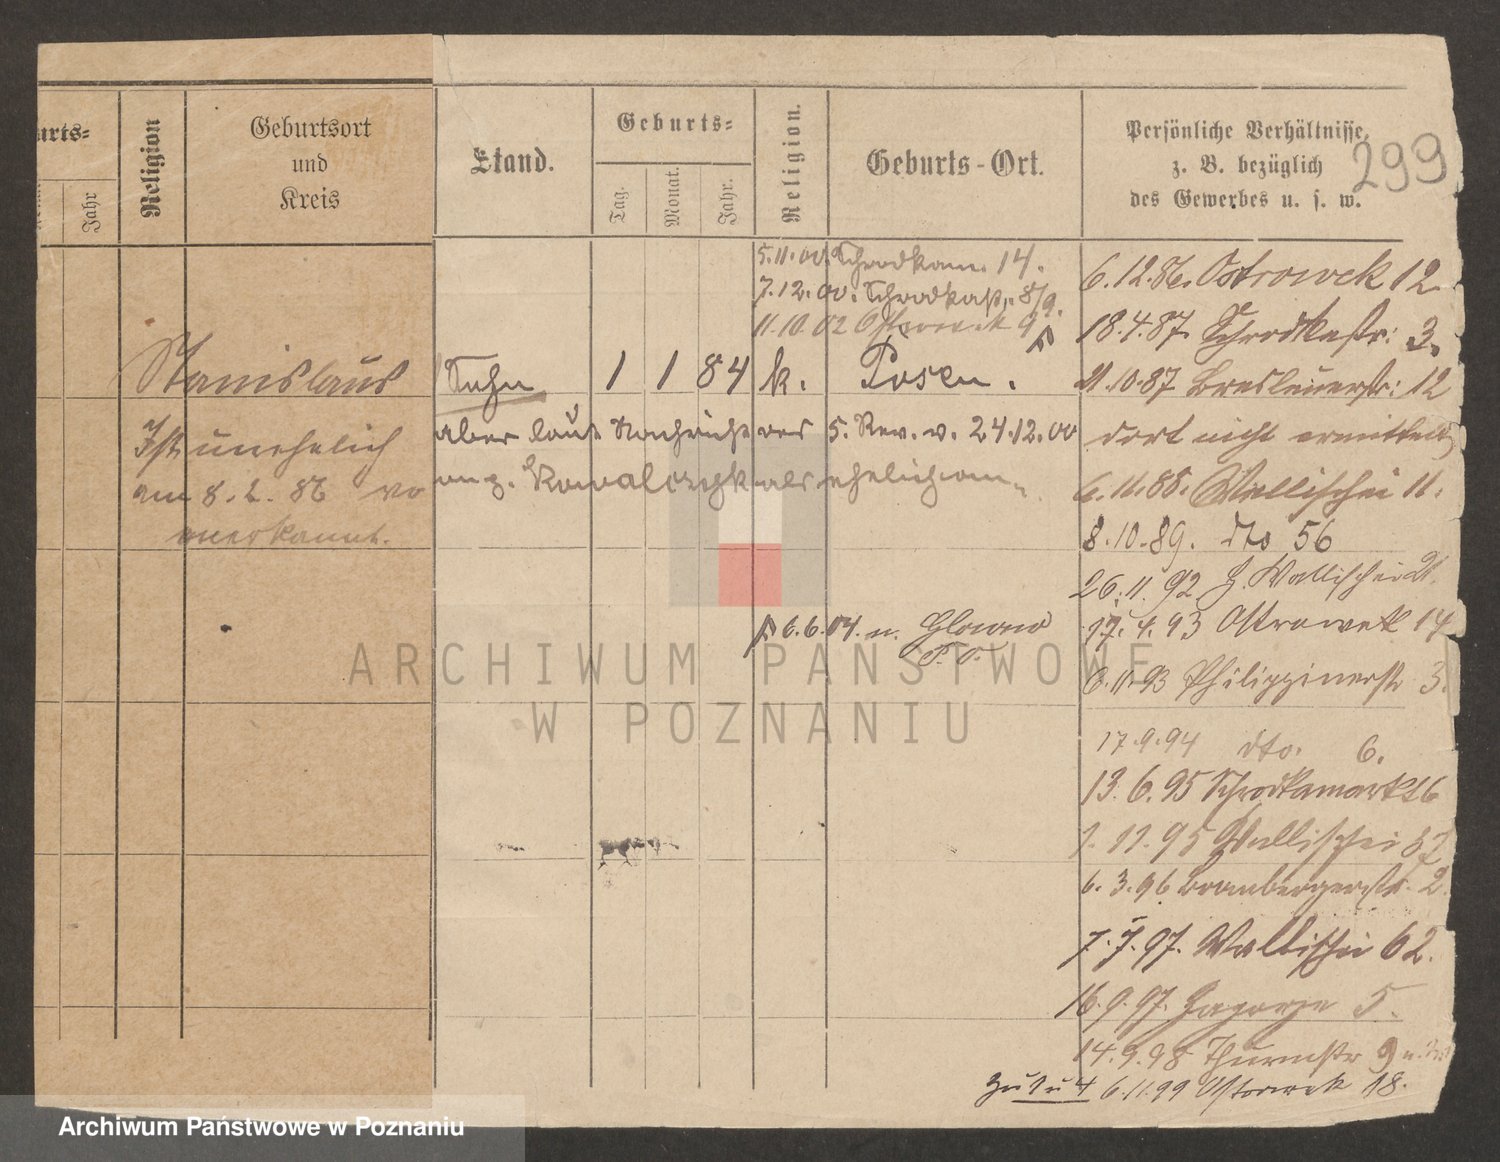 299
urts=
Jahr
Religion
Geburtsort
und
Kreis
Stand.
Geburts=
Tag.
Monat.
Jahr.
Religion.
Geburts-Ort.
Persönliche Verhältnisse,
z. B. bezüglich
des Gewerbes u. s. w.
5.11.00. Schrodkam. 14.
7.12.00. Schrodkastr. 8/9.
11.10.02 Ostrowek 9
Stanislaus Sohn 1 1 84 k. Posen.
Ist unehelich aber laut Nachricht des 5. Rev. v. 24.12.00
am 8.2.86 vo Kowalczyk als ehelich
anerkannt.
6.6.04. n. Glowno
P. O.
6.12.86. Ostrowek 12
18.4.87. Schrodkastr: 3.
21.10.87 Breslauerstr: 12
dort nicht ermittelt
6.11.88. Wallischei 11.
8.10.89. dto 56
26.11.92 Wallischei 21.
17.4.93 Ostrowek 14
6.11.93 Philippinerstr 3.
17.9.94 dto. 6.
13.6.95 Schrodkamarkt 6
1.11.95 Wallischei
6.3.96 Brombergerstr. 2.
7.7.97. Wallischei 62.
16.9.97. Zagorze 5.
14.9.98 Thurmstr 9
zu 1 u 4 6.11.99 Ostrowek 18.
ARCHIWUM PAŃSTWOWE
W POZNANIU
Archiwum Państwowe w Poznaniu